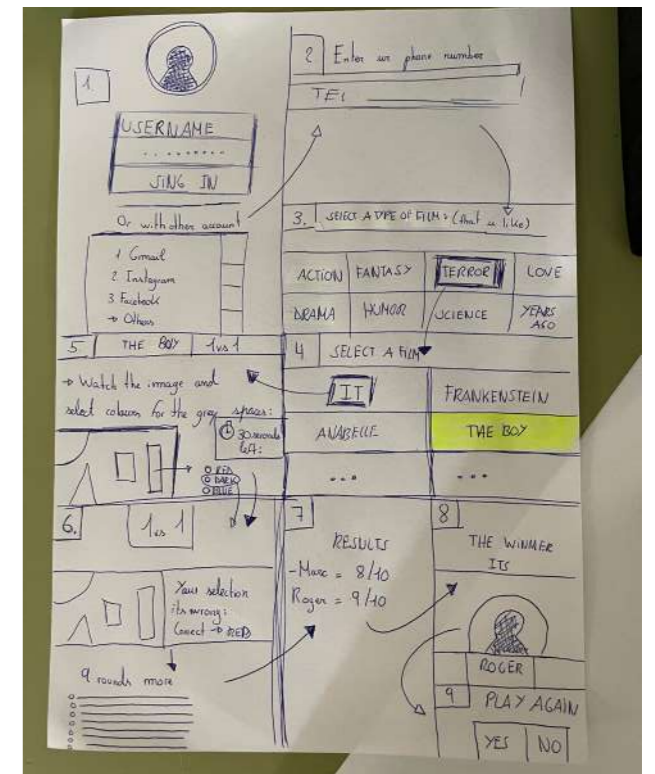 1.
USERNAME
. . . . . . . . .
SING IN
Or with other account
1 Gmail
2. Instagram
3 Facebook
→ Others
2
Enter ur phone number
TEL
3.
SELECT A TYPE OF FILM: (that u like)
ACTION FANTASY TERROR LOVE
DRAMA HUMOR SCIENCE YEARS AGO
4
SELECT A FILM
IT
FRANKENSTEIN
ANABELLE
THE BOY
...
...
5.
THE BOY
1 vs 1
→ Watch the image and
select colours for the grey spaces:
30 seconds
left:
RED
DARK
BLUE
6.
1 vs 1
Your selection
its wrong:
Correct → RED
9 rounds more
7
RESULTS
-Marc = 8/10
Roger = 9/10
8
THE WINNER
ITS
ROGER
9
PLAY AGAIN
YES NO